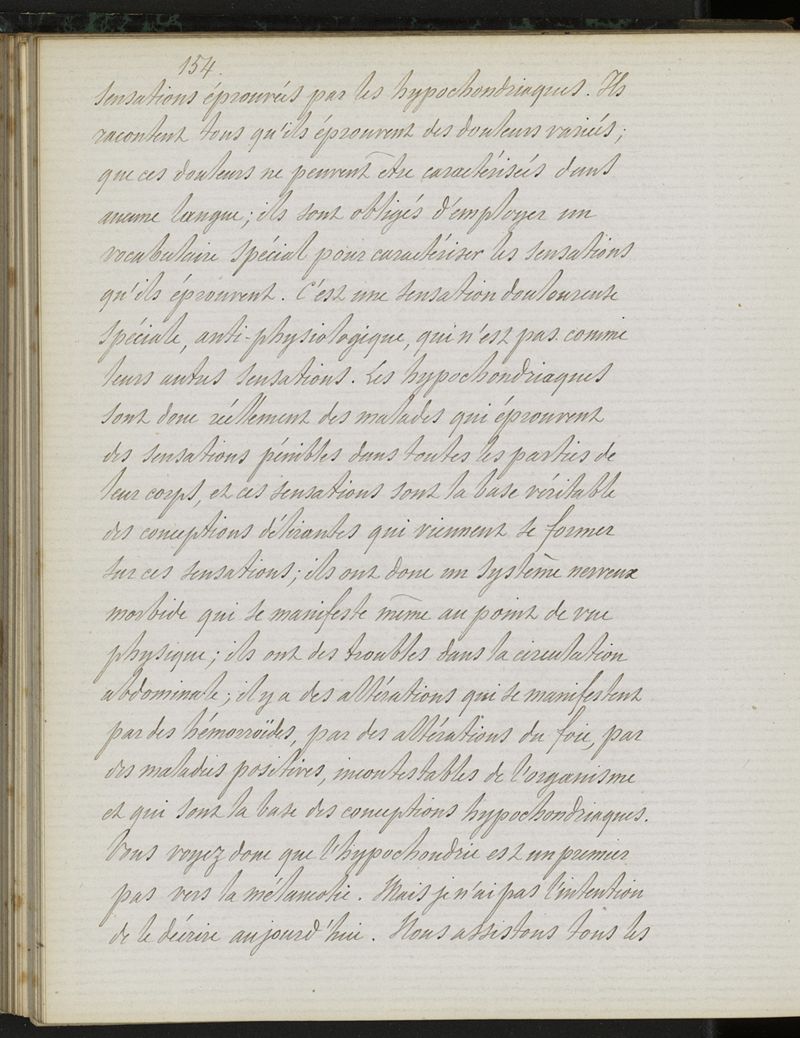 154.
sensations éprouvées par les hypochondriaques. Ils
racontent tous qu'ils éprouvent des douleurs variées;
que ces douleurs ne peuvent être caractérisées dans
aucune langue; ils sont obligés d'employer un
vocabulaire spécial pour caractériser les sensations
qu'ils éprouvent. C'est une sensation douloureuse
spéciale, anti-physiologique, qui n'est pas comme
leurs autres sensations. Les hypochondriaques
sont donc réellement des malades qui éprouvent
des sensations pénibles dans toutes les parties de
leur corps, et ces sensations sont la base véritable
des conceptions délirantes qui viennent se former
sur ces sensations; ils ont donc un système nerveux
morbide qui se manifeste même au point de vue
physique; ils ont des troubles dans la circulation
abdominale; il y a des altérations qui se manifestent
par des hémorroïdes, par des altérations du foie, par
des maladies positives, incontestables de l'organisme
et qui sont la base des conceptions hypochondriaques.
Vous voyez donc que l'hypochondrie est un premier
pas vers la mélancolie. Mais je n'ai pas l'intention
de le décrire aujourd'hui. Nous assistons tous les